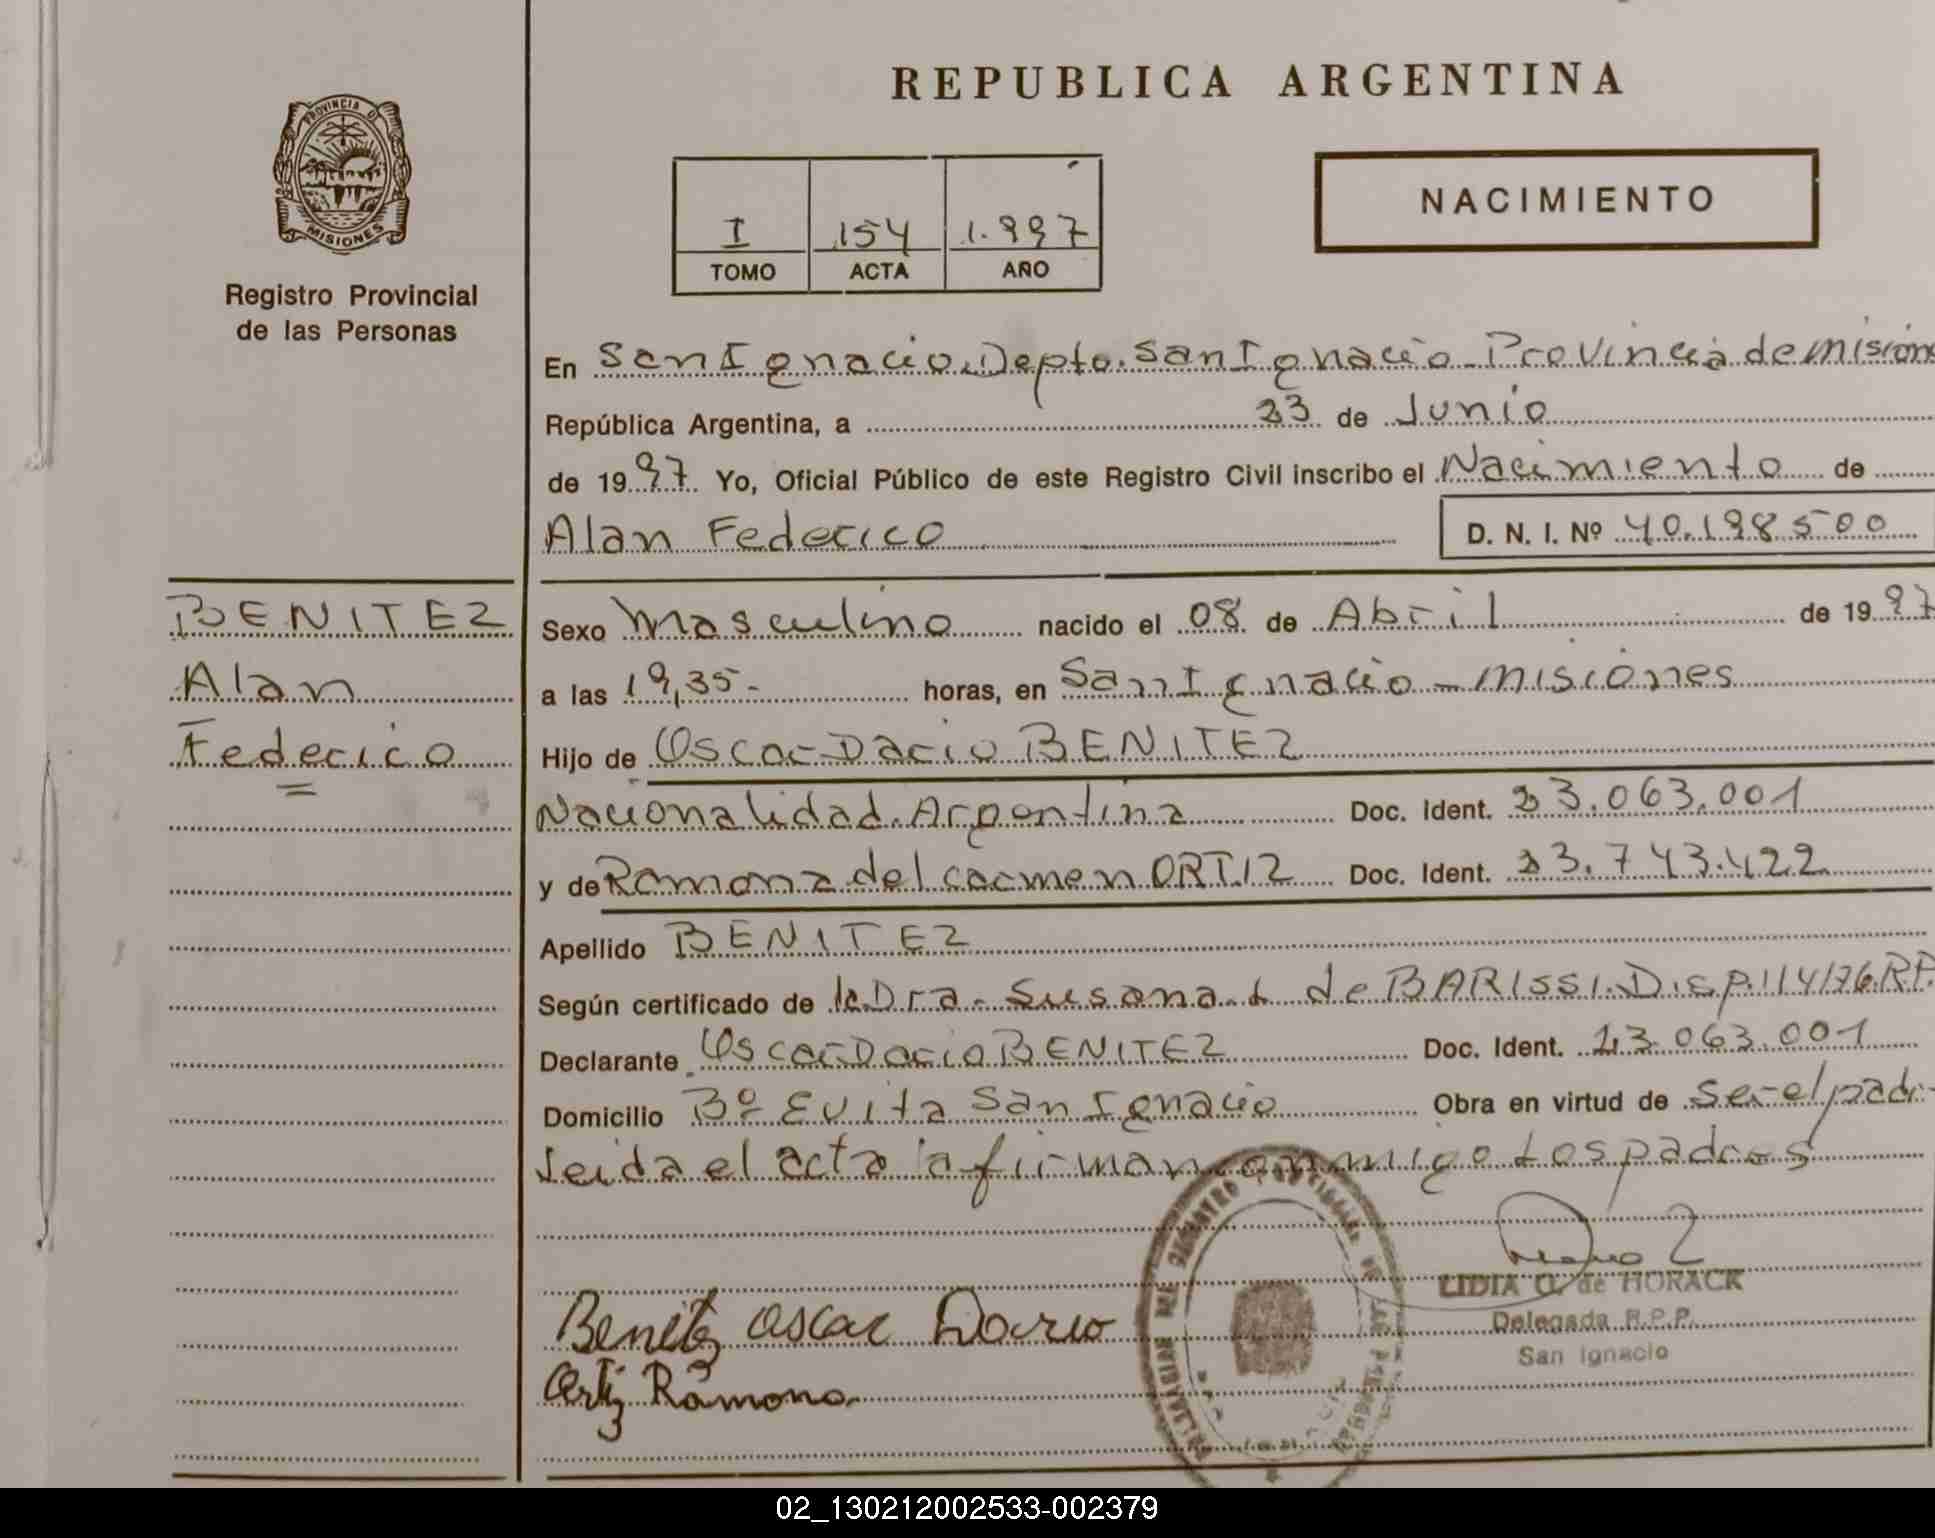 REPUBLICA ARGENTINA
PROVINCIA DE
MISIONES
Registro Provincial
de las Personas
I 154 1.997
TOMO ACTA AÑO
NACIMIENTO
En San Ignacio. Depto. San Ignacio - Provincia de Mision
República Argentina, a 23 de Junio
de 1997 Yo, Oficial Público de este Registro Civil inscribo el Nacimiento de
Alan Federico D. N. I. Nº 40.198500
BENITEZ
Alan
Federico
Sexo Masculino nacido el 08 de Abril de 1997
a las 19,35- horas, en San Ignacio - Misiones
Hijo de Oscar Dario BENITEZ
Nacionalidad Argentina Doc. Ident. 23.063.001
y de Ramona del Carmen ORTIZ Doc. Ident. 23.743.422
Apellido BENITEZ
Según certificado de la Dra. Susana L de BARISSI. Disp. 114/76. RP.
Declarante Oscar Dario BENITEZ Doc. Ident. 23.063.001
Domicilio Bº Evita San Ignacio Obra en virtud de Ser el padr-
Leida el acta la firman conmigo Los padres
LIDIA O. de HORACK
Delegada R.P.P.
San Ignacio
Benitez Oscar Dario
Ortiz Ramona
02_130212002533-002379